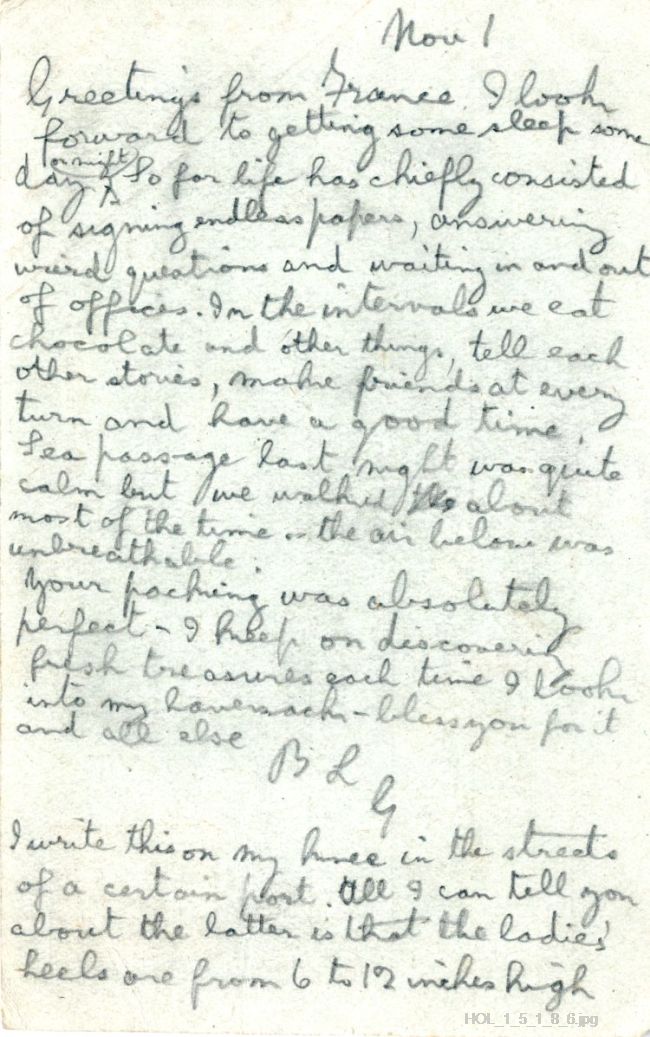 Nov 1
Greetings from France. I look
forward to getting some sleep some
day (or night). So far life has chiefly consisted
of signing endless papers, answering
wierd questions and waiting in and out
of offices. In the intervals we eat
chocolate and other things, tell each
other stories, make friends at every
turn and have a good time.
Sea passage last night was quite
calm but we walked about
most of the time - the air below was
unbreathable.
Your packing was absolutely
perfect - I keep on discovering
fresh treasures each time I look
into my haversack - bless you for it
and all else
B L
G
I write this on my knee in the streets
of a certain port. All I can tell you
about the latter is that the ladies'
heels are from 6 to 12 inches high
HOL_1_5_1_8_6.jpg